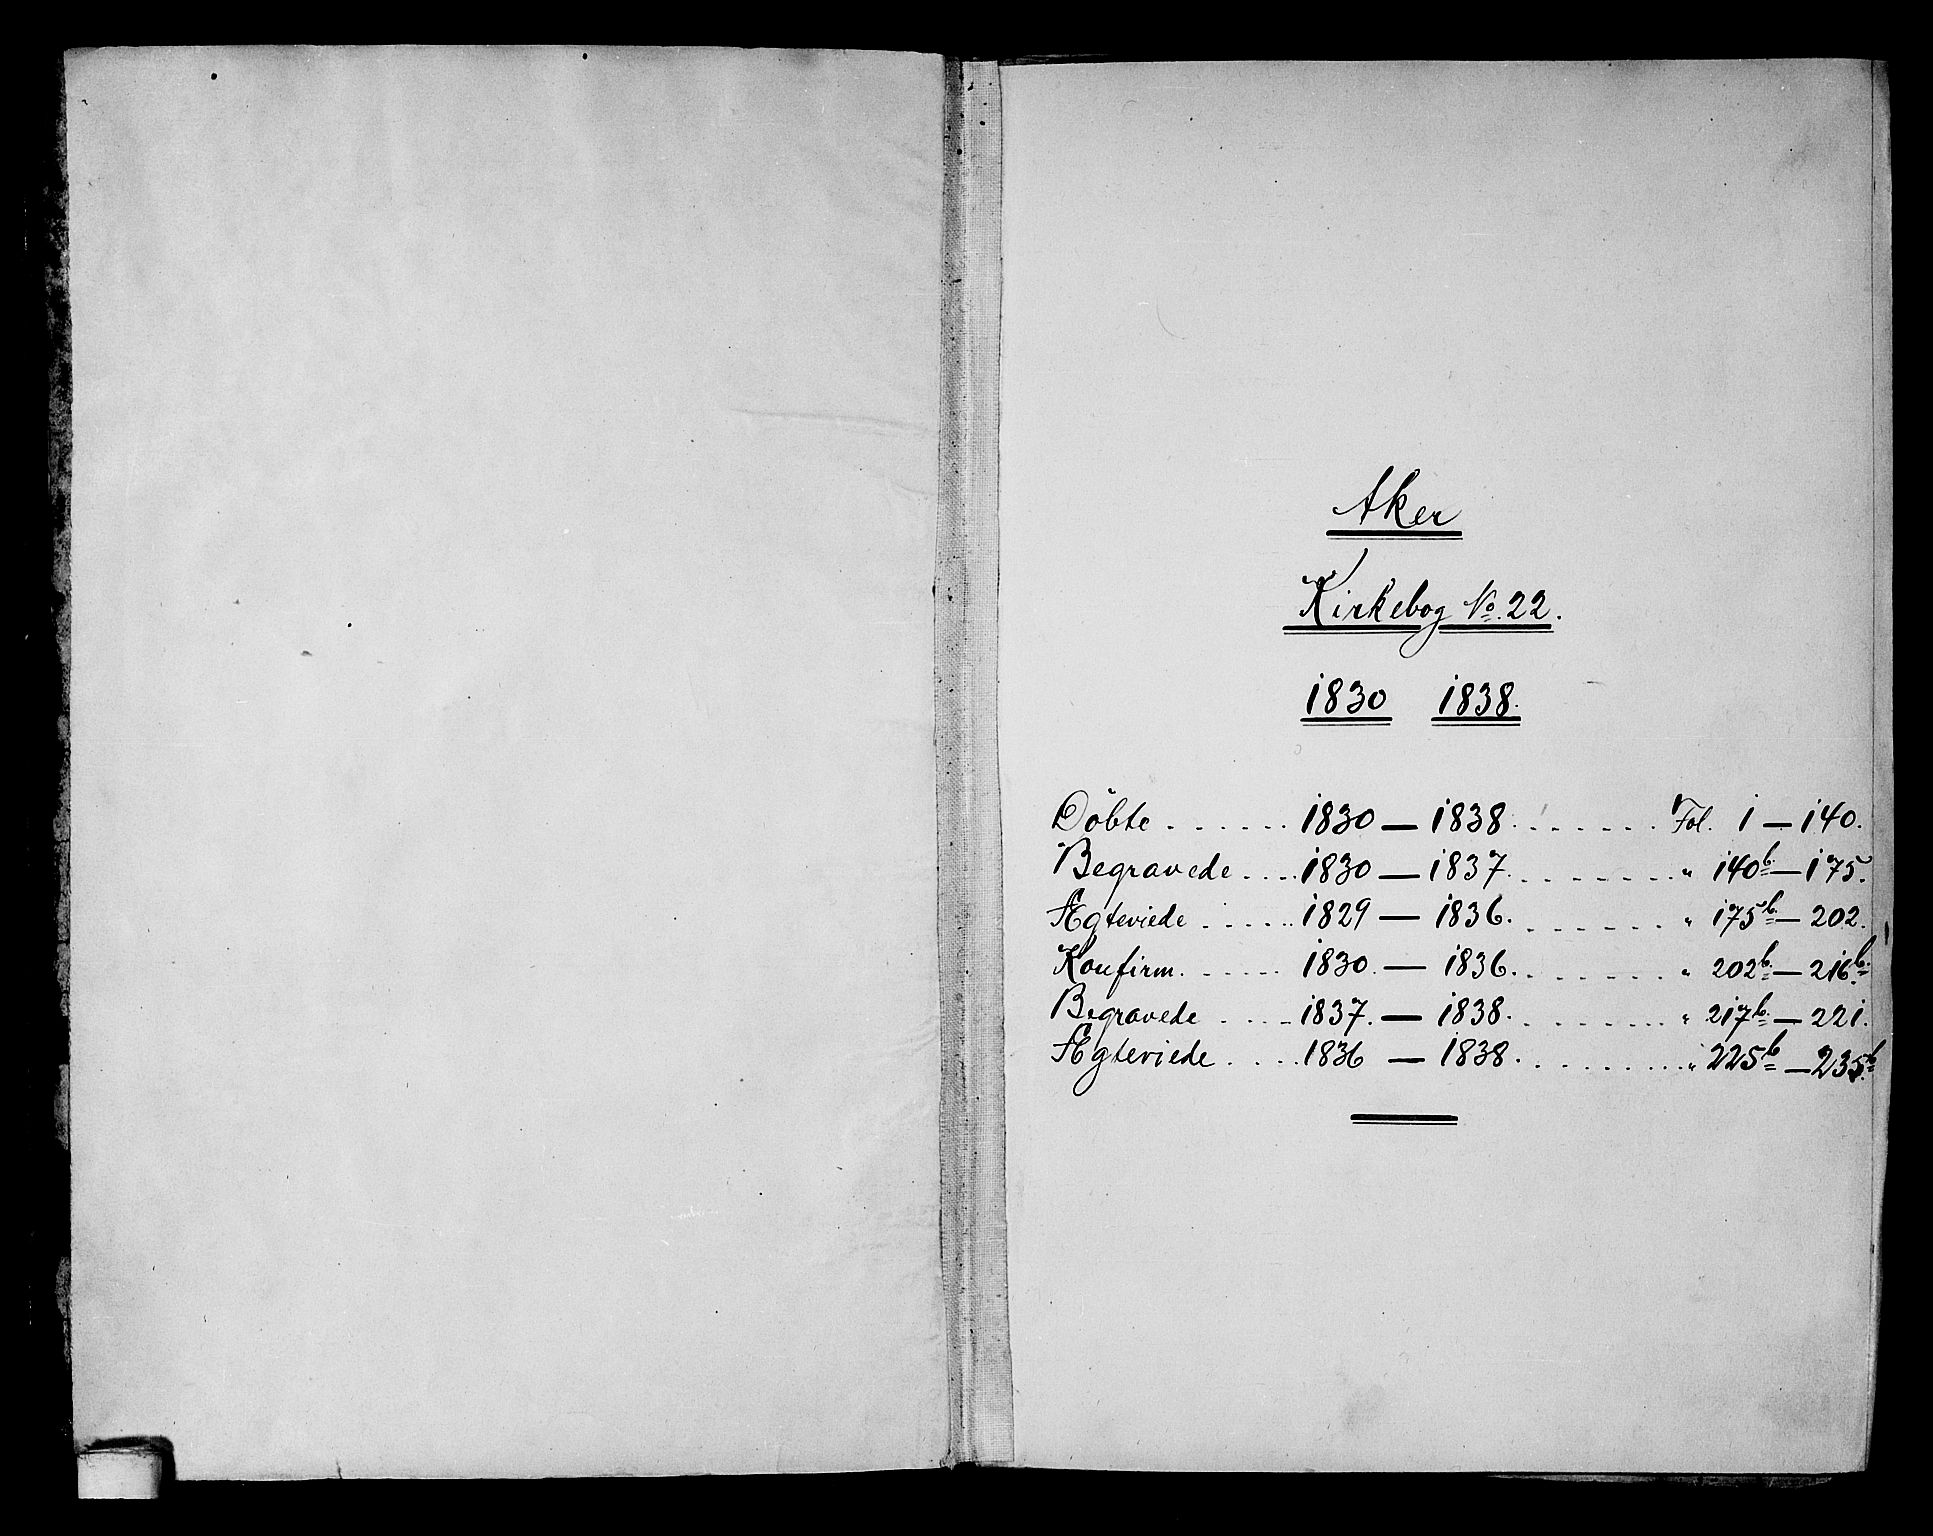 Aker
Kirkebog No. 22.
1830 1838.
Döbte . . . . . . 1830 — 1838 . . . . . . . Fol. 1 — 140.
Begravede . . . . 1830 — 1837. . . . . . . . " 140b. — 175.
Ægteviede . . . . . 1829 — 1836. . . . . . . . " 175b. — 202.
Konfirm. . . . . . 1830. — 1836. . . . . . . . " 202b. — 216b.
Begravede . . . . 1837. — 1838. . . . . . . . " 217b. — 221.
Ægteviede . . . . 1836 — 1838. . . . . . . . . " 225b — 235b.